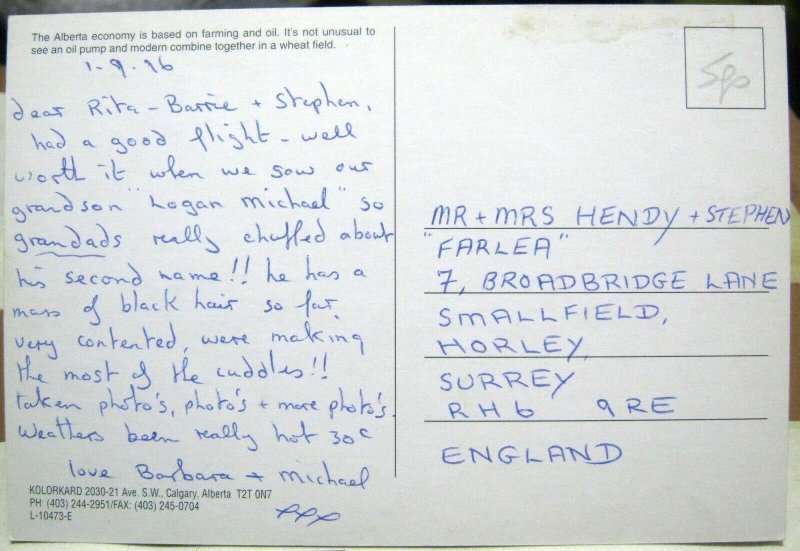 The Alberta economy is based on farming and oil. It's not unusual to
see an oil pump and modern combine together in a wheat field.
1-9-96
dear Rita - Barrie + Stephen,
had a good flight - well
worth it when we saw our
grandson "Logan Michael" so
grandads really chuffed about
his second name!! he has a
mass of black hair so far,
very contented, were making
the most of the cuddles!!
taken photo's, photo's + more photo's.
Weathers been really hot 30c
love Barbara + Michael
xxx
KOLORKARD 2030-21 Ave. S.W., Calgary, Alberta T2T 0N7
PH: (403) 244-2951/FAX: (403) 245-0704
L-10473-E
50p
MR + MRS HENDY + STEPHEN
"FARLEA"
7, BROADBRIDGE LANE
SMALLFIELD,
HORLEY,
SURREY
RH6 9RE
ENGLAND